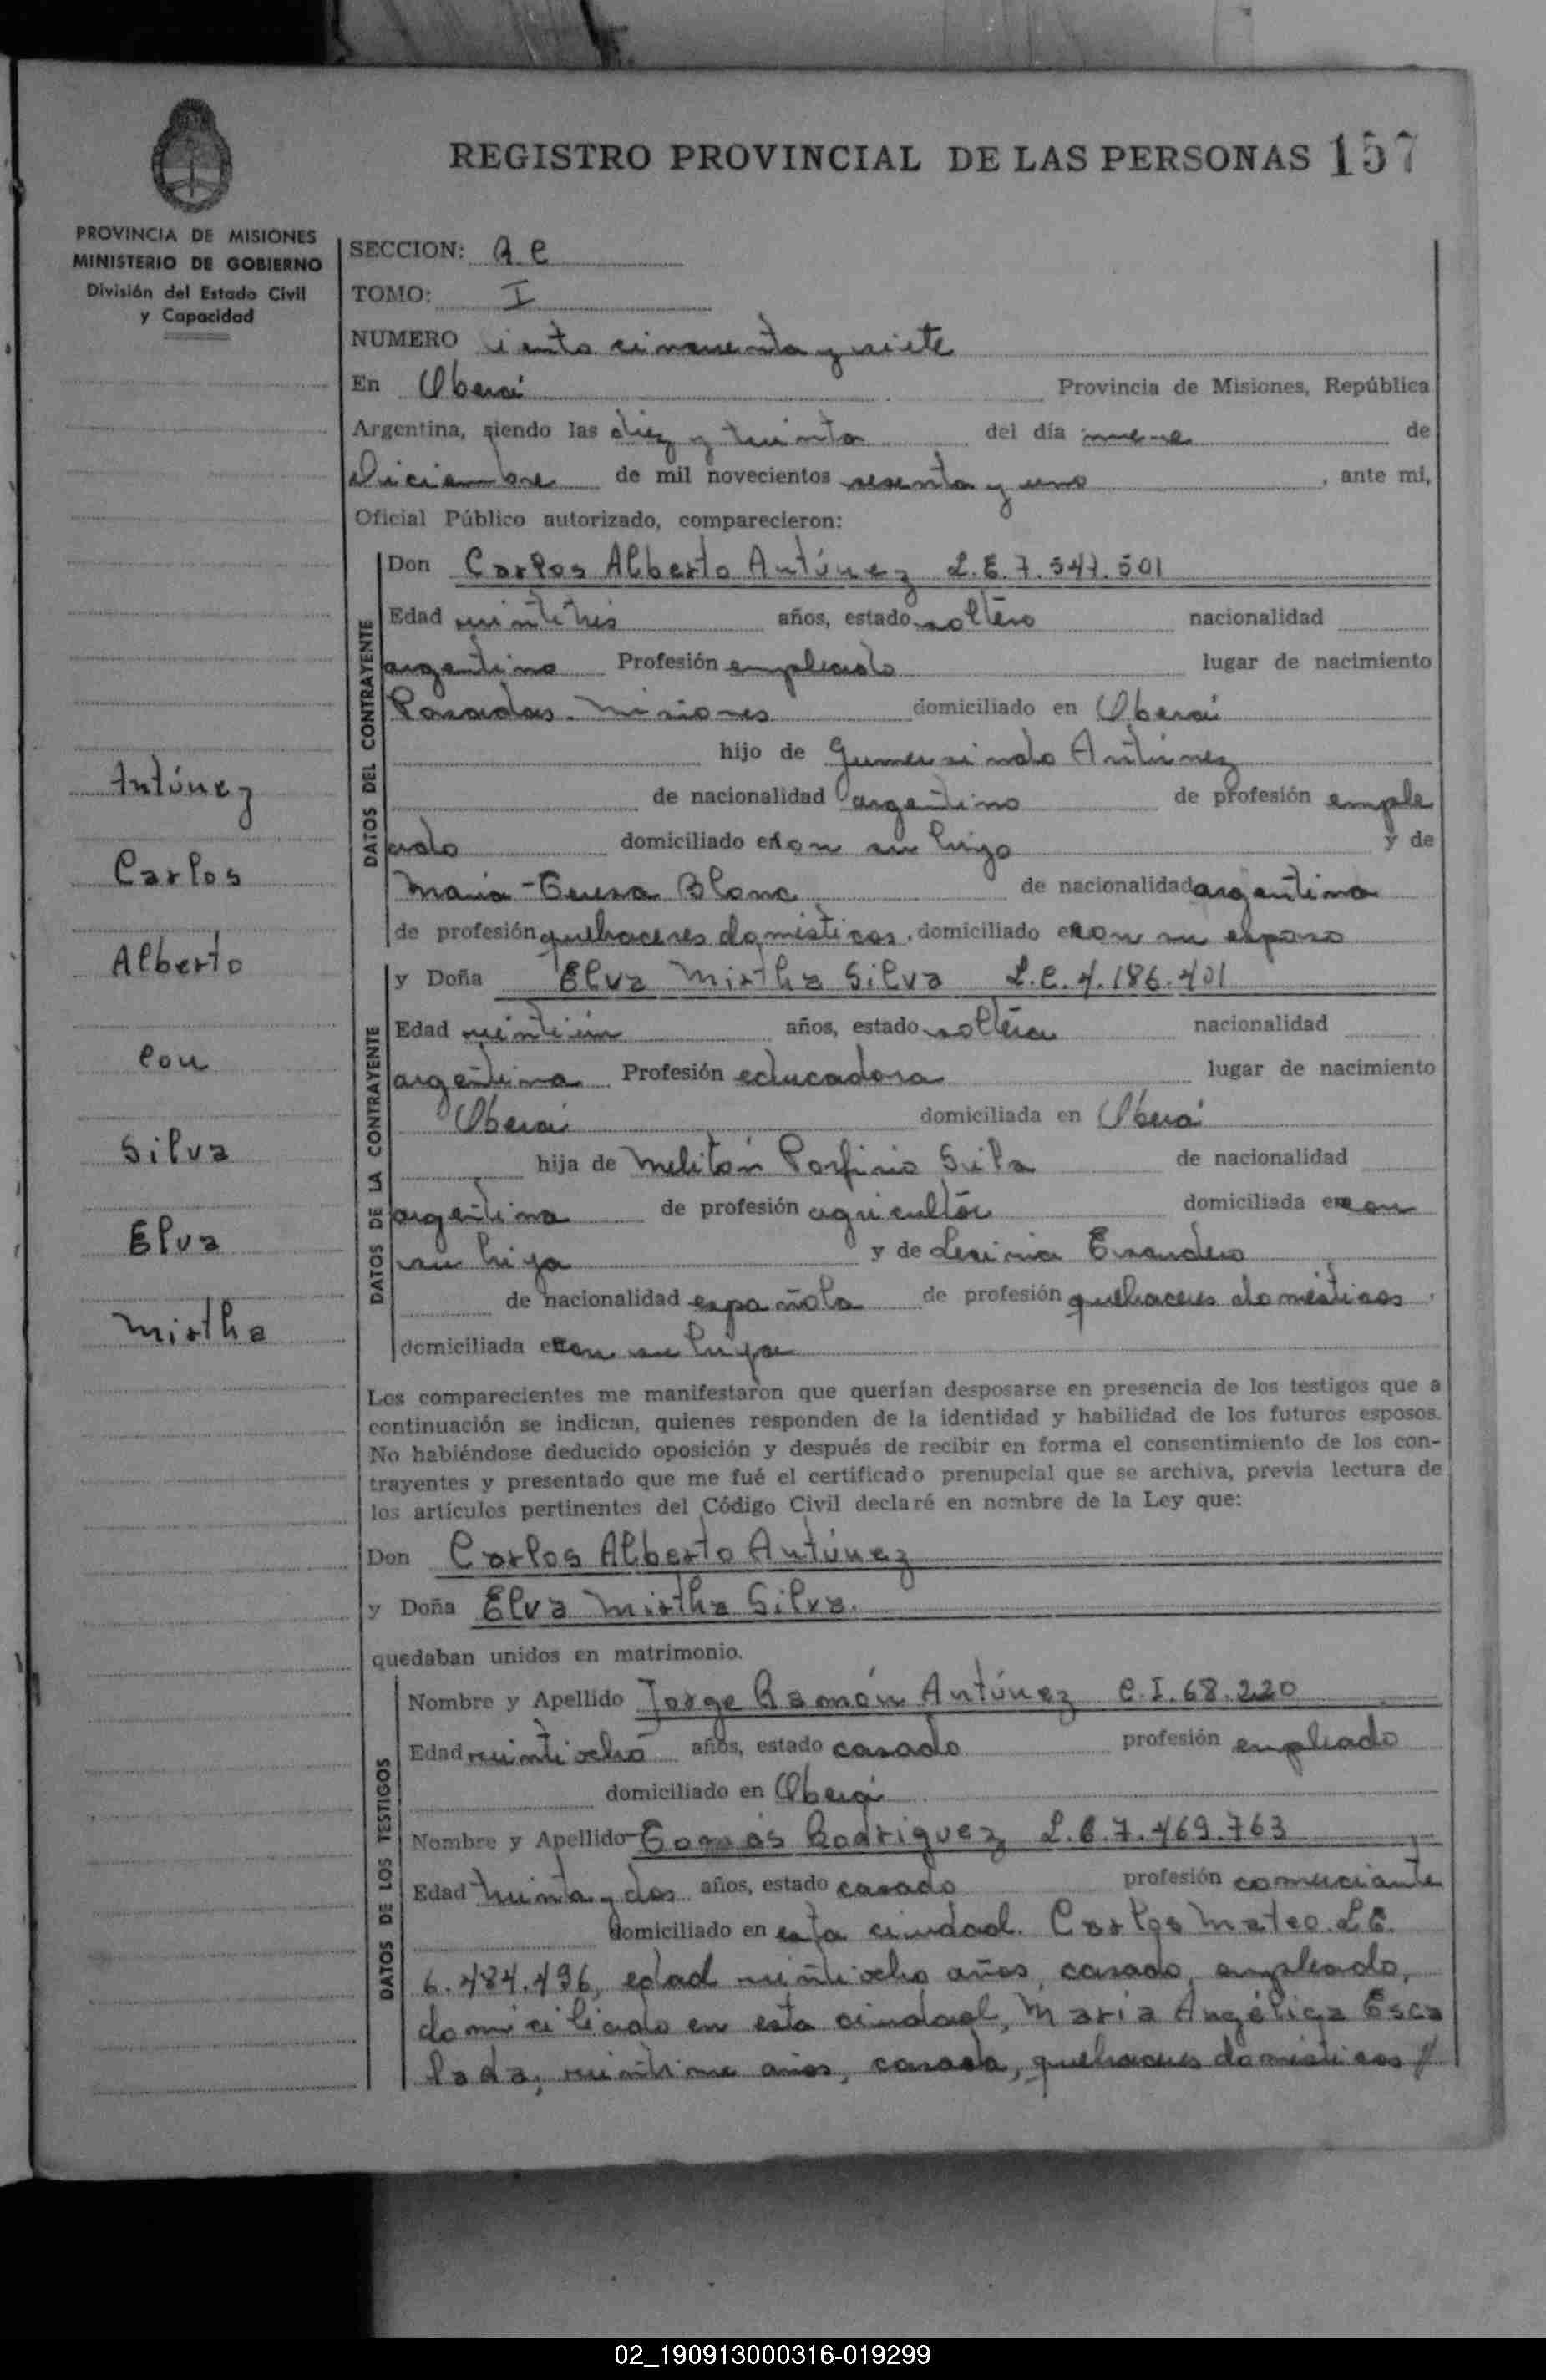 REGISTRO PROVINCIAL DE LAS PERSONAS 157
PROVINCIA DE MISIONES
MINISTERIO DE GOBIERNO
División del Estado Civil
y Capacidad
Antúnez
Carlos
Alberto
con
Silva
Elva
Mirtha
SECCION:
TOMO: I
NUMERO ciento cincuenta y siete
En Oberá Provincia de Misiones, República
Argentina, siendo las diez y treinta del día nueve de
Diciembre de mil novecientos sesenta y uno, ante mi,
Oficial Público autorizado, comparecieron:
DATOS DEL CONTRAYENTE
Don Carlos Alberto Antúnez L.E. 7.547.501
Edad veintitrés años, estado soltero nacionalidad
argentino Profesión empleado lugar de nacimiento
Posadas. Misiones domiciliado en Oberá
hijo de Gumersindo Antúnez
de nacionalidad argentino de profesión emple
ado domiciliado con su hijo y de
María Teresa Blanc de nacionalidad argentina
de profesión quehaceres domésticos, domiciliado con su esposo
DATOS DE LA CONTRAYENTE
y Doña Elva Mirtha Silva L.C. 4.186.401
Edad veintiún años, estado soltera nacionalidad
argentina Profesión educadora lugar de nacimiento
Oberá domiciliada en Oberá
hija de Melitón Porfirio Silva de nacionalidad
argentina de profesión agricultor domiciliada con
su hija y de
de nacionalidad española de profesión quehaceres domésticos,
domiciliada con su hija
Los comparecientes me manifestaron que querían desposarse en presencia de los testigos que a
continuación se indican, quienes responden de la identidad y habilidad de los futuros esposos.
No habiéndose deducido oposición y después de recibir en forma el consentimiento de los con-
trayentes y presentado que me fué el certificado prenupcial que se archiva, previa lectura de
los artículos pertinentes del Código Civil declaré en nombre de la Ley que:
Don Carlos Alberto Antúnez
y Doña Elva Mirtha Silva.
quedaban unidos en matrimonio.
DATOS DE LOS TESTIGOS
Nombre y Apellido Jorge Ramón Antúnez C.I. 68.220
Edad veintiocho años, estado casado profesión empleado
domiciliado en Oberá
Nombre y Apellido Tomás Rodriguez L.E. 7.469.763
Edad treinta y dos años, estado casado profesión comerciante
domiciliado en esta ciudad. Carlos Mateo. L.E.
6.484.496, edad veintiocho años, casado, empleado,
domiciliado en esta ciudad, María Angélica Esca
lada, años, casada, quehaceres domésticos //
02_190913000316-019299